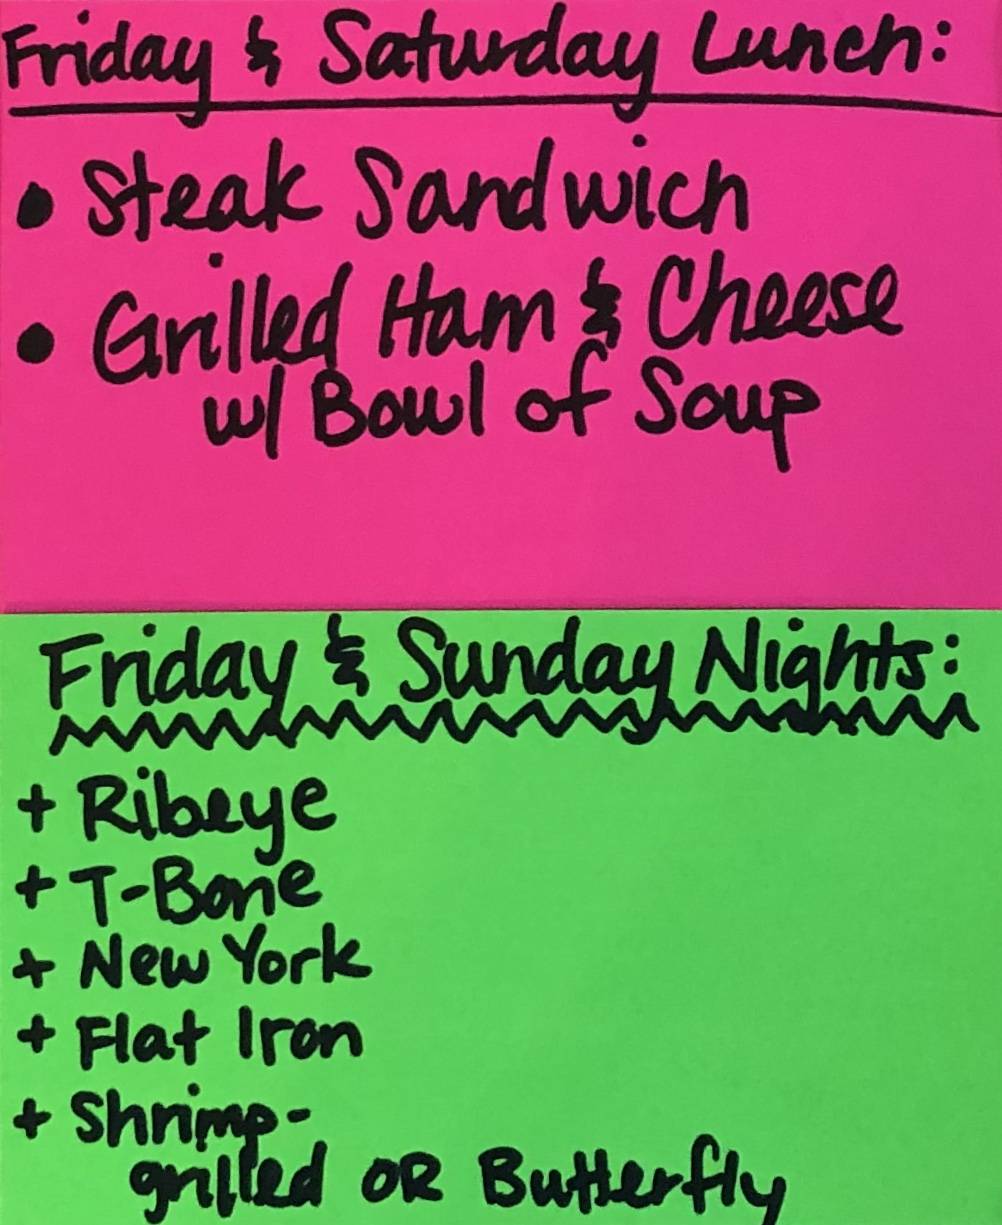 Friday & Saturday Lunch:
• Steak Sandwich
• Grilled Ham & Cheese
w/ Bowl of Soup
Friday & Sunday Nights:
+ Ribeye
+ T-Bone
+ New York
+ Flat Iron
+ Shrimp-
grilled OR Butterfly